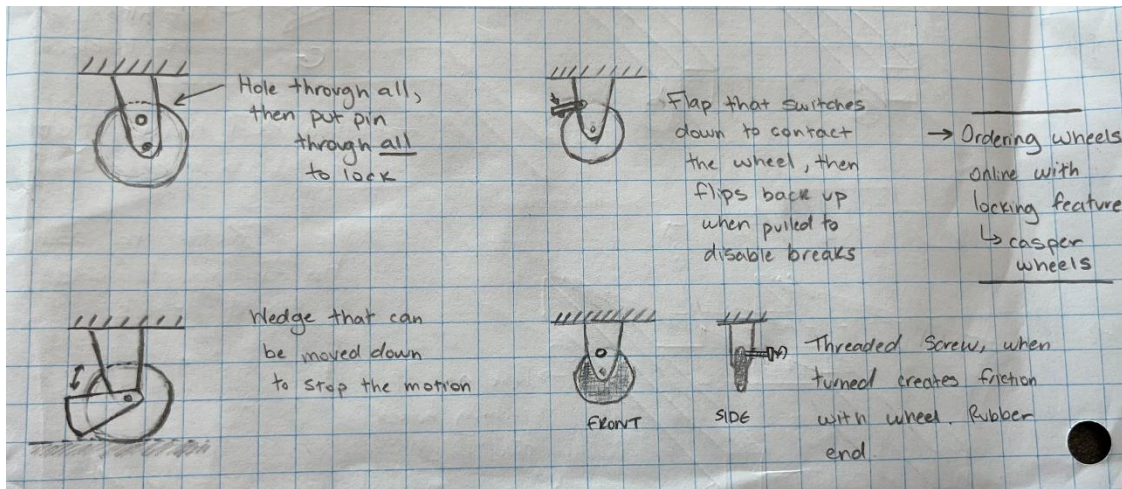 Hole through all,
then put pin
through all
to lock
Flap that switches
down to contact
the wheel, then
flips back up
when pulled to
disable breaks
→ Ordering wheels
online with
locking feature
↳ casper
wheels
Wedge that can
be moved down
to stop the motion
FRONT
SIDE
Threaded Screw, when
turned creates friction
with wheel. Rubber
end